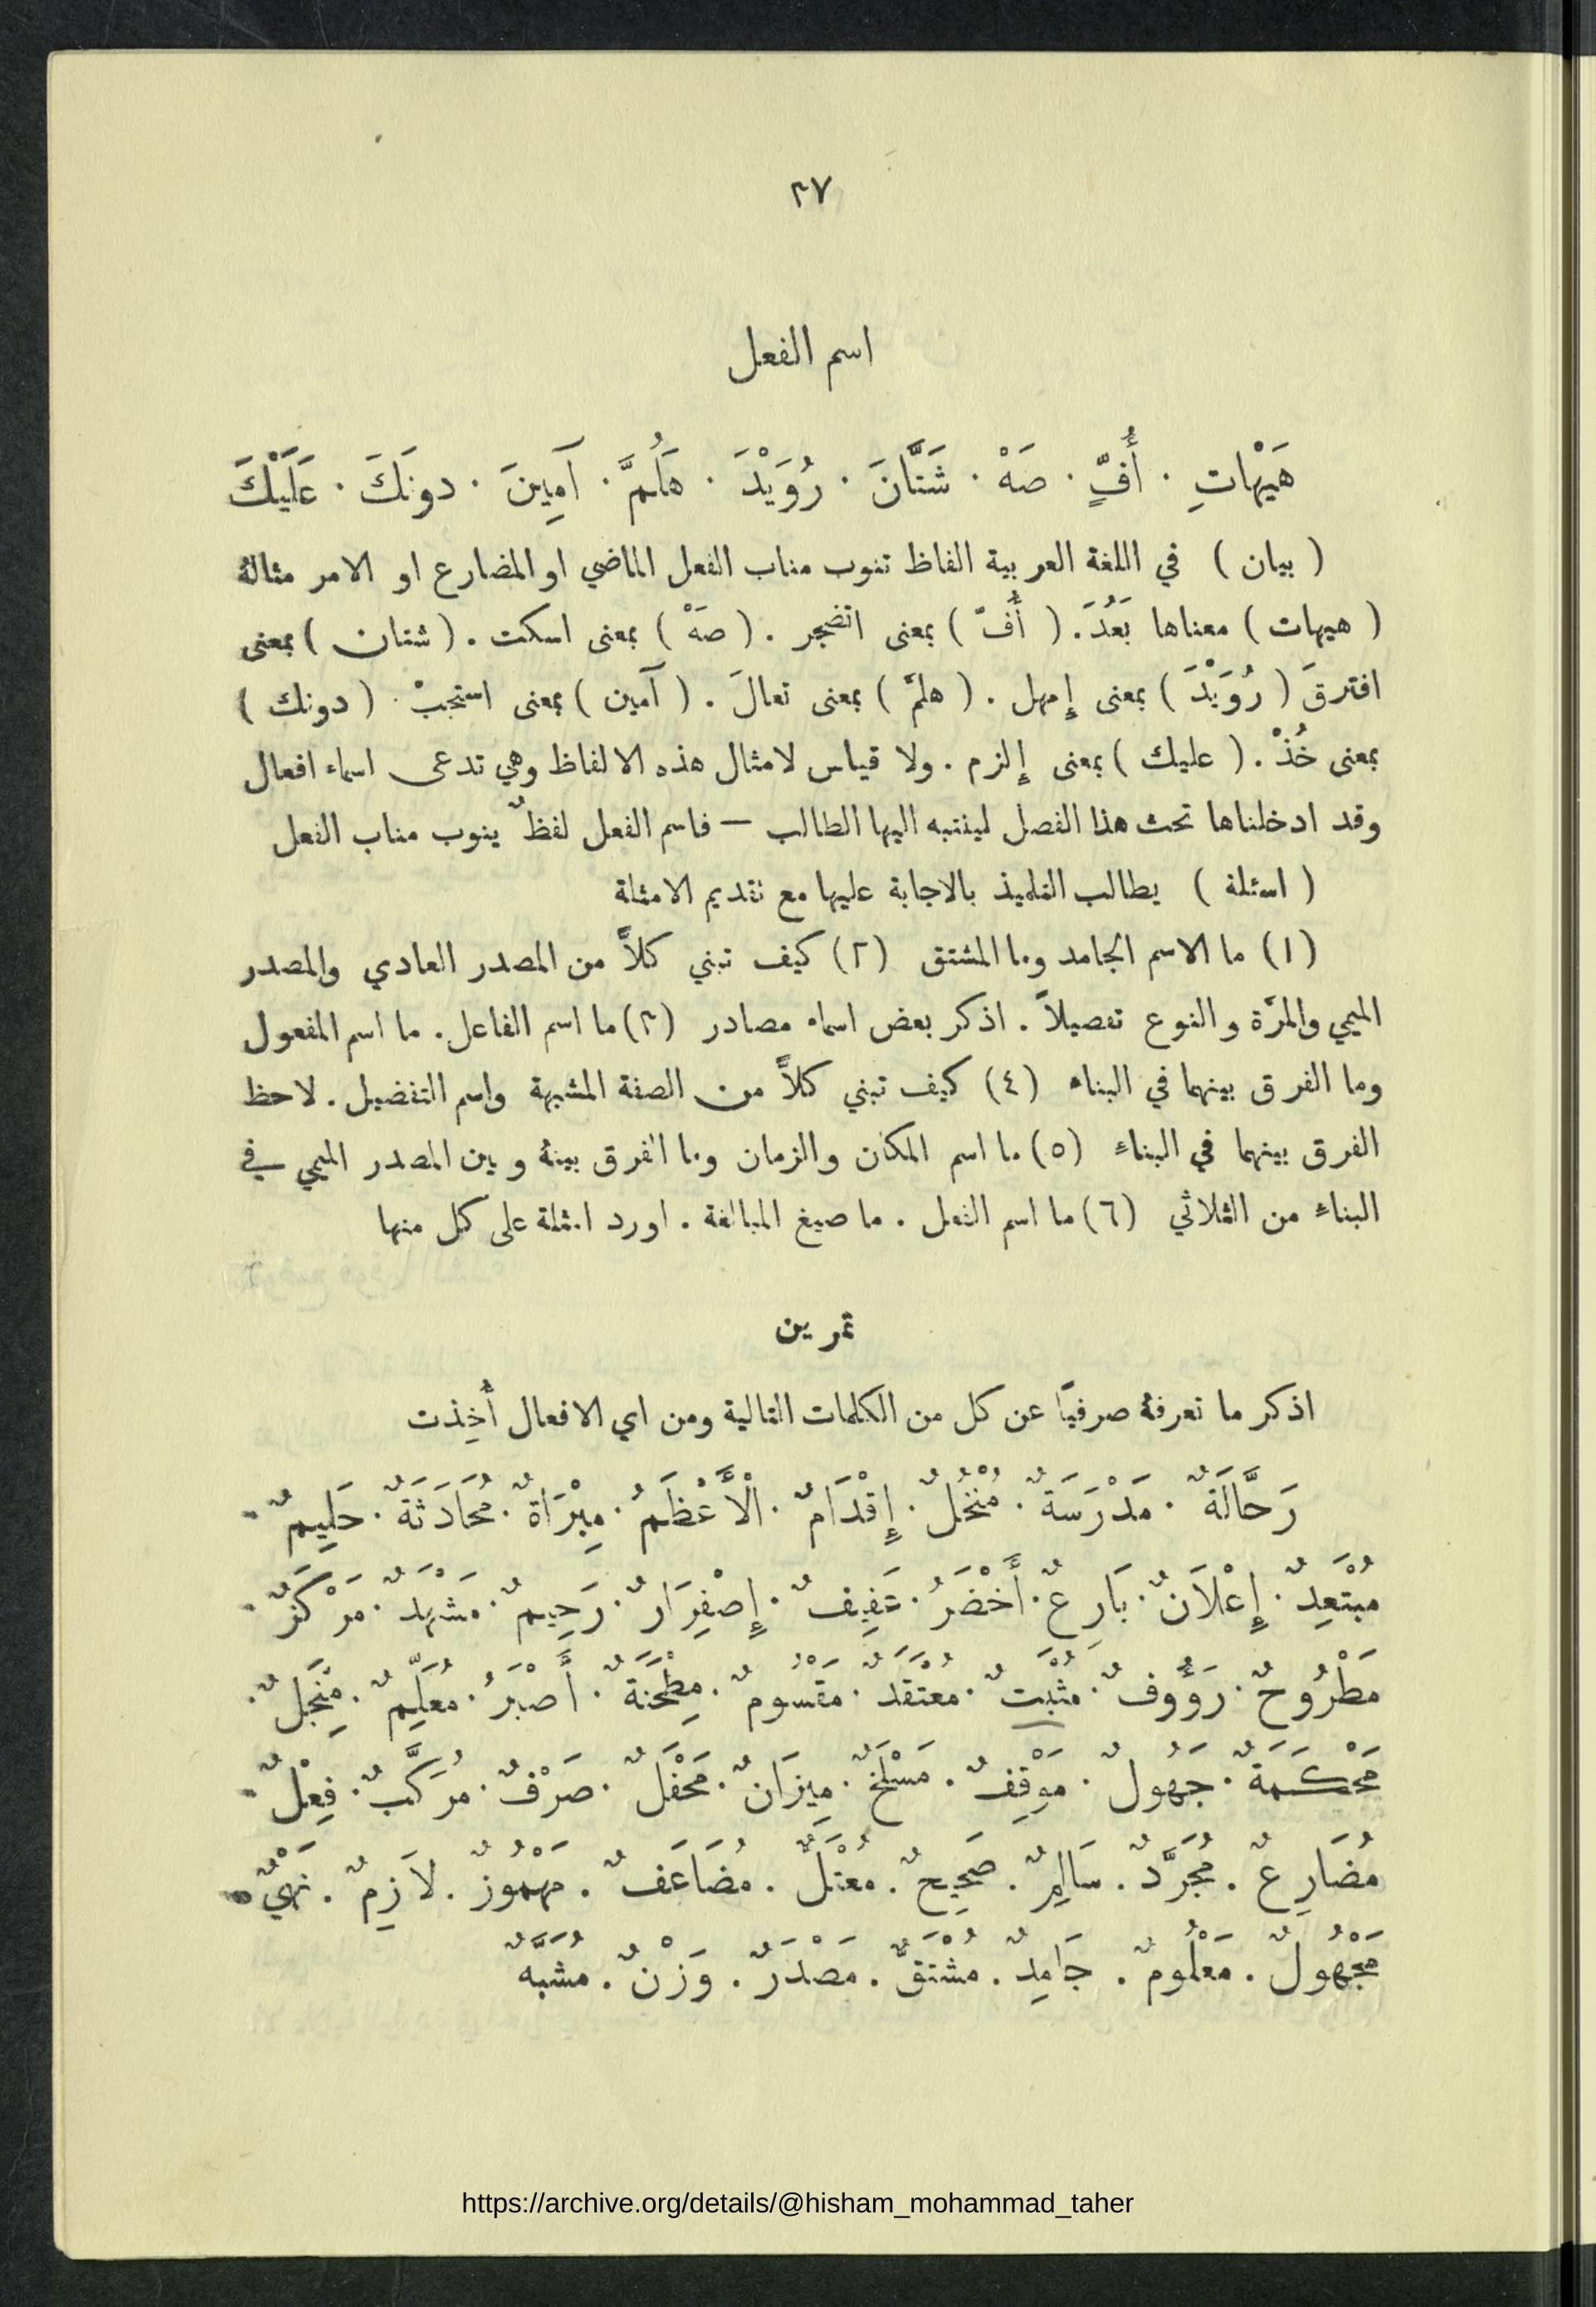 ٢٧
اسم الفعل
هَيْهَاتِ · أُفٍّ · صَهْ · شَتَّانَ · رُوَيْدَ · هَلُمَّ · آمِينَ · دونَكَ · عَلَيْكَ
( بيان ) في اللغة العربية الفاظ تنوب مناب الفعل الماضي او المضارع او الامر مثالهُ
( هيهات ) معناها بَعُدَ . ( أُفّ ) بمعنى اتضجر . ( صَهْ ) بمعنى اسكت . ( شتان ) بمعنى
افترقَ ( رُوَيْدَ ) بمعنى إِمهل . ( هلمَّ ) بمعنى تعالَ . ( آمين ) بمعنى استجبْ . ( دونك )
بمعنى خُذْ . ( عليك ) بمعنى إِلزم . ولا قياس لامثال هذه الالفاظ وهي تدعى اسماء افعال
وقد ادخلناها تحت هذا الفصل لينتبه اليها الطالب — فاسم الفعل لفظٌ ينوب مناب الفعل
( اسئلة ) يطالب التلميذ بالاجابة عليها مع تقديم الامثلة
(١) ما الاسم الجامد وما المشتق (٢) كيف تبني كلاًّ من المصدر العادي والمصدر
الميمي والمرَّة والنوع تفصيلاً . اذكر بعض اسماء مصادر (٣) ما اسم الفاعل . ما اسم المفعول
وما الفرق بينهما في البناء (٤) كيف تبني كلاًّ من الصفة المشبهة واسم التفضيل . لاحظ
الفرق بينهما في البناءِ (٥) ما اسم المكان والزمان وما الفرق بينهُ وبين المصدر الميمي في
البناءِ من الثلاثي (٦) ما اسم الفعل . ما صيغ المبالغة . اورد امثلة على كل منها
تمرين
اذكر ما تعرفهُ صرفيًّا عن كل من الكلمات التالية ومن اي الافعال أُخِذت
رَحَّالَةٌ · مَدْرَسَةٌ · مُنْخُلٌ · إِقْدَامٌ · الْأَعْظَمُ · مِبْرَاةٌ · مُحَادَثَةٌ · حَلِيمٌ ·
مُبْتَعِدٌ · إِعْلاَنٌ · بَارِعٌ · أَخْضَرُ · عَفِيفٌ · إِصْفِرَارٌ · رَحِيمٌ · مَشْهَدٌ · مَرْكَزٌ ·
مَطْرُوحٌ · رَؤُوفٌ · مُثْبَتٌ · مُعْتَقَدٌ · مَقْسُومٌ · مِطْحَنَةٌ · أَصْبَرُ · مُعَلِّمٌ · مِنْجَلٌ ·
مَحْكَمَةٌ · جَهُولٌ · مَوْقِفٌ · مَسْلَخٌ · مِيزَانٌ · مَحْفَلٌ · صَرْفٌ · مُرَكَّبٌ · فِعْلٌ ·
مُضَارِعٌ . مُجَرَّدٌ . سَالِمٌ . صَحِيحٌ . مُعْتَلٌّ . مُضَاعَفٌ . مَهْمُوزٌ . لاَزِمٌ . نَهْيٌ .
مَجْهُولٌ . مَعْلُومٌ . جَامِدٌ . مُشْتَقٌّ . مَصْدَرٌ . وَزْنٌ . مُشَبَّهٌ
https://archive.org/details/@hisham_mohammad_taher